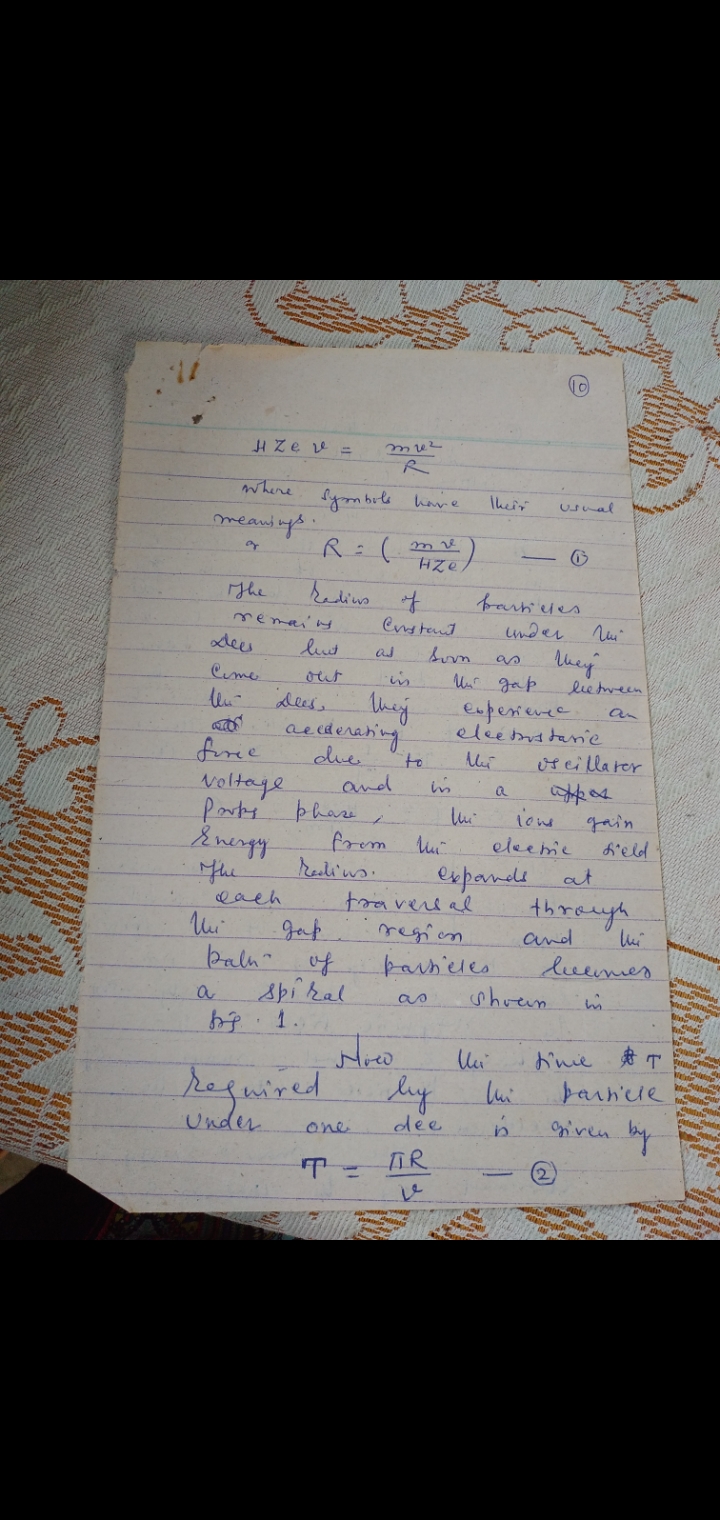 ⑩
HZev = mv²/R
where symbols have their usual
meanings.
or R = (mv/HZe) — ①
The Radius of particles
remains constant under the
Dees but as soon as they
come out in the gap between
the Dees, they experience an
accelerating electrostatic
force due to the oscillator
voltage and in a
phase, the ions gain
Energy from the electric field
The Radius. expands at
each traversal through
the gap region and the
path of particles becomes
a spiral as shown in
fig. 1.
Now the time T
Required by the particle
under one dee is given by
T = πR/v — ②